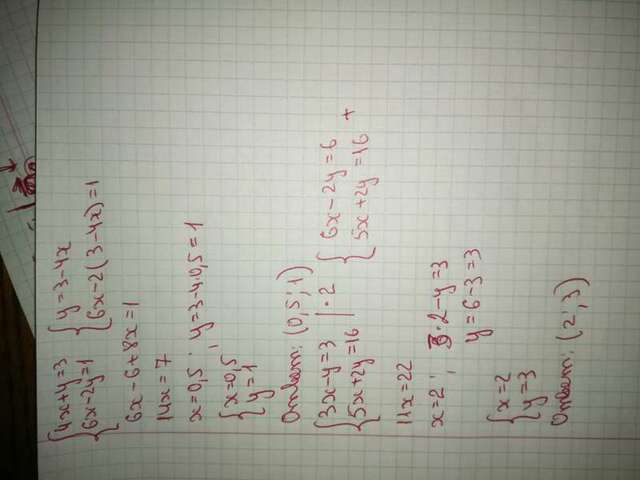 {4x+y=3 {y=3-4x
{6x-2y=1 {6x-2(3-4x)=1
6x-6+8x=1
14x=7
x=0,5 ; y=3-4·0,5=1
{x=0,5
{y=1
Ответ: (0,5;1)
{3x-y=3 |·2 {6x-2y=6
{5x+2y=16 | {5x+2y=16 +
11x=22
x=2; 3·2-y=3
y=6-3=3
{x=2
{y=3
Ответ: (2;3)